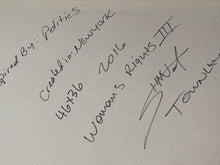 spired By: Politics
Created in: New York
46x36 2016
Womans Rights III